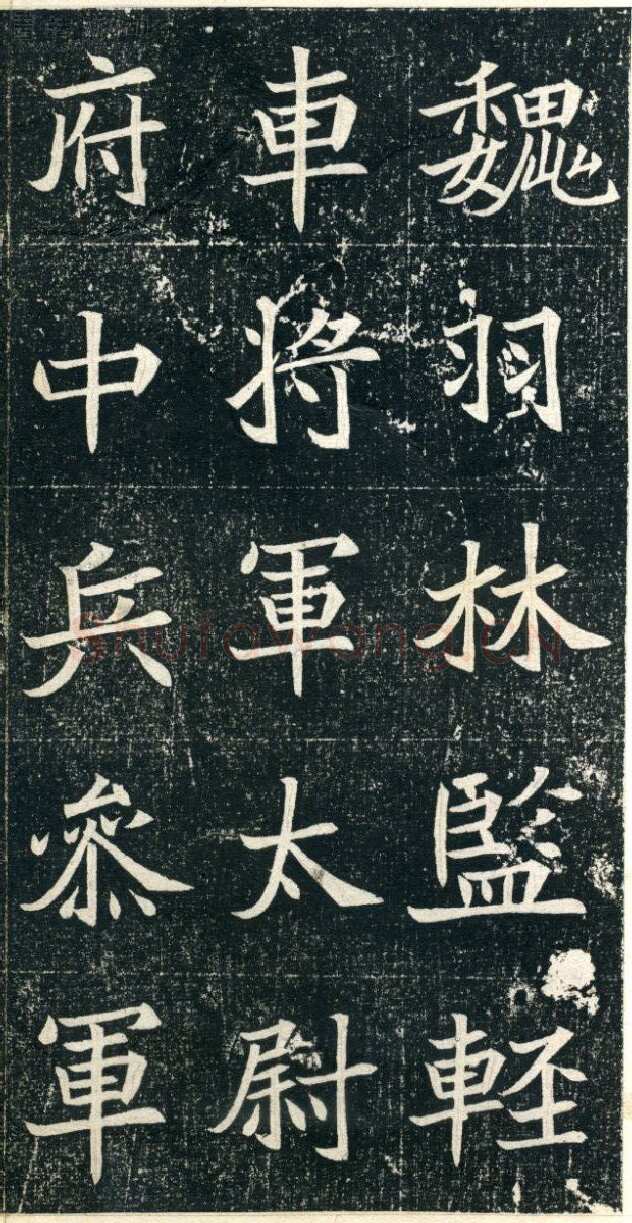 魏羽林監軽
車将軍太尉
府中兵叅軍
Shufawang.CN